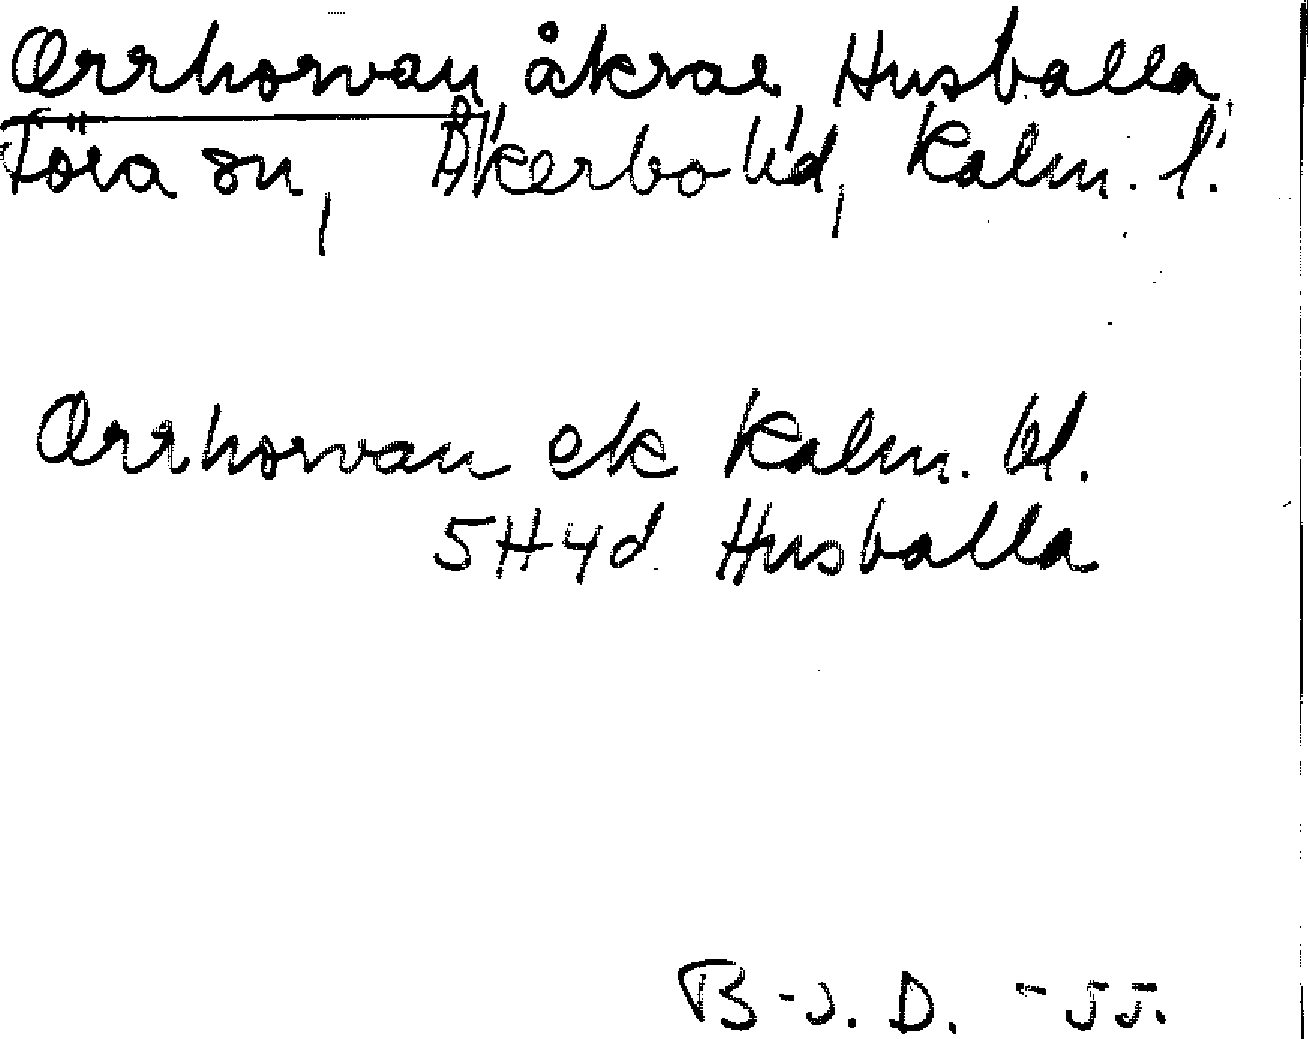 Orrhorvan, åkrar, Husvalla,
Föra sn, Åkerbo hd, Kalm. l.
Orrhorvan ek Kalm. bl.
5H4d Husvalla
B-J. D. -55.